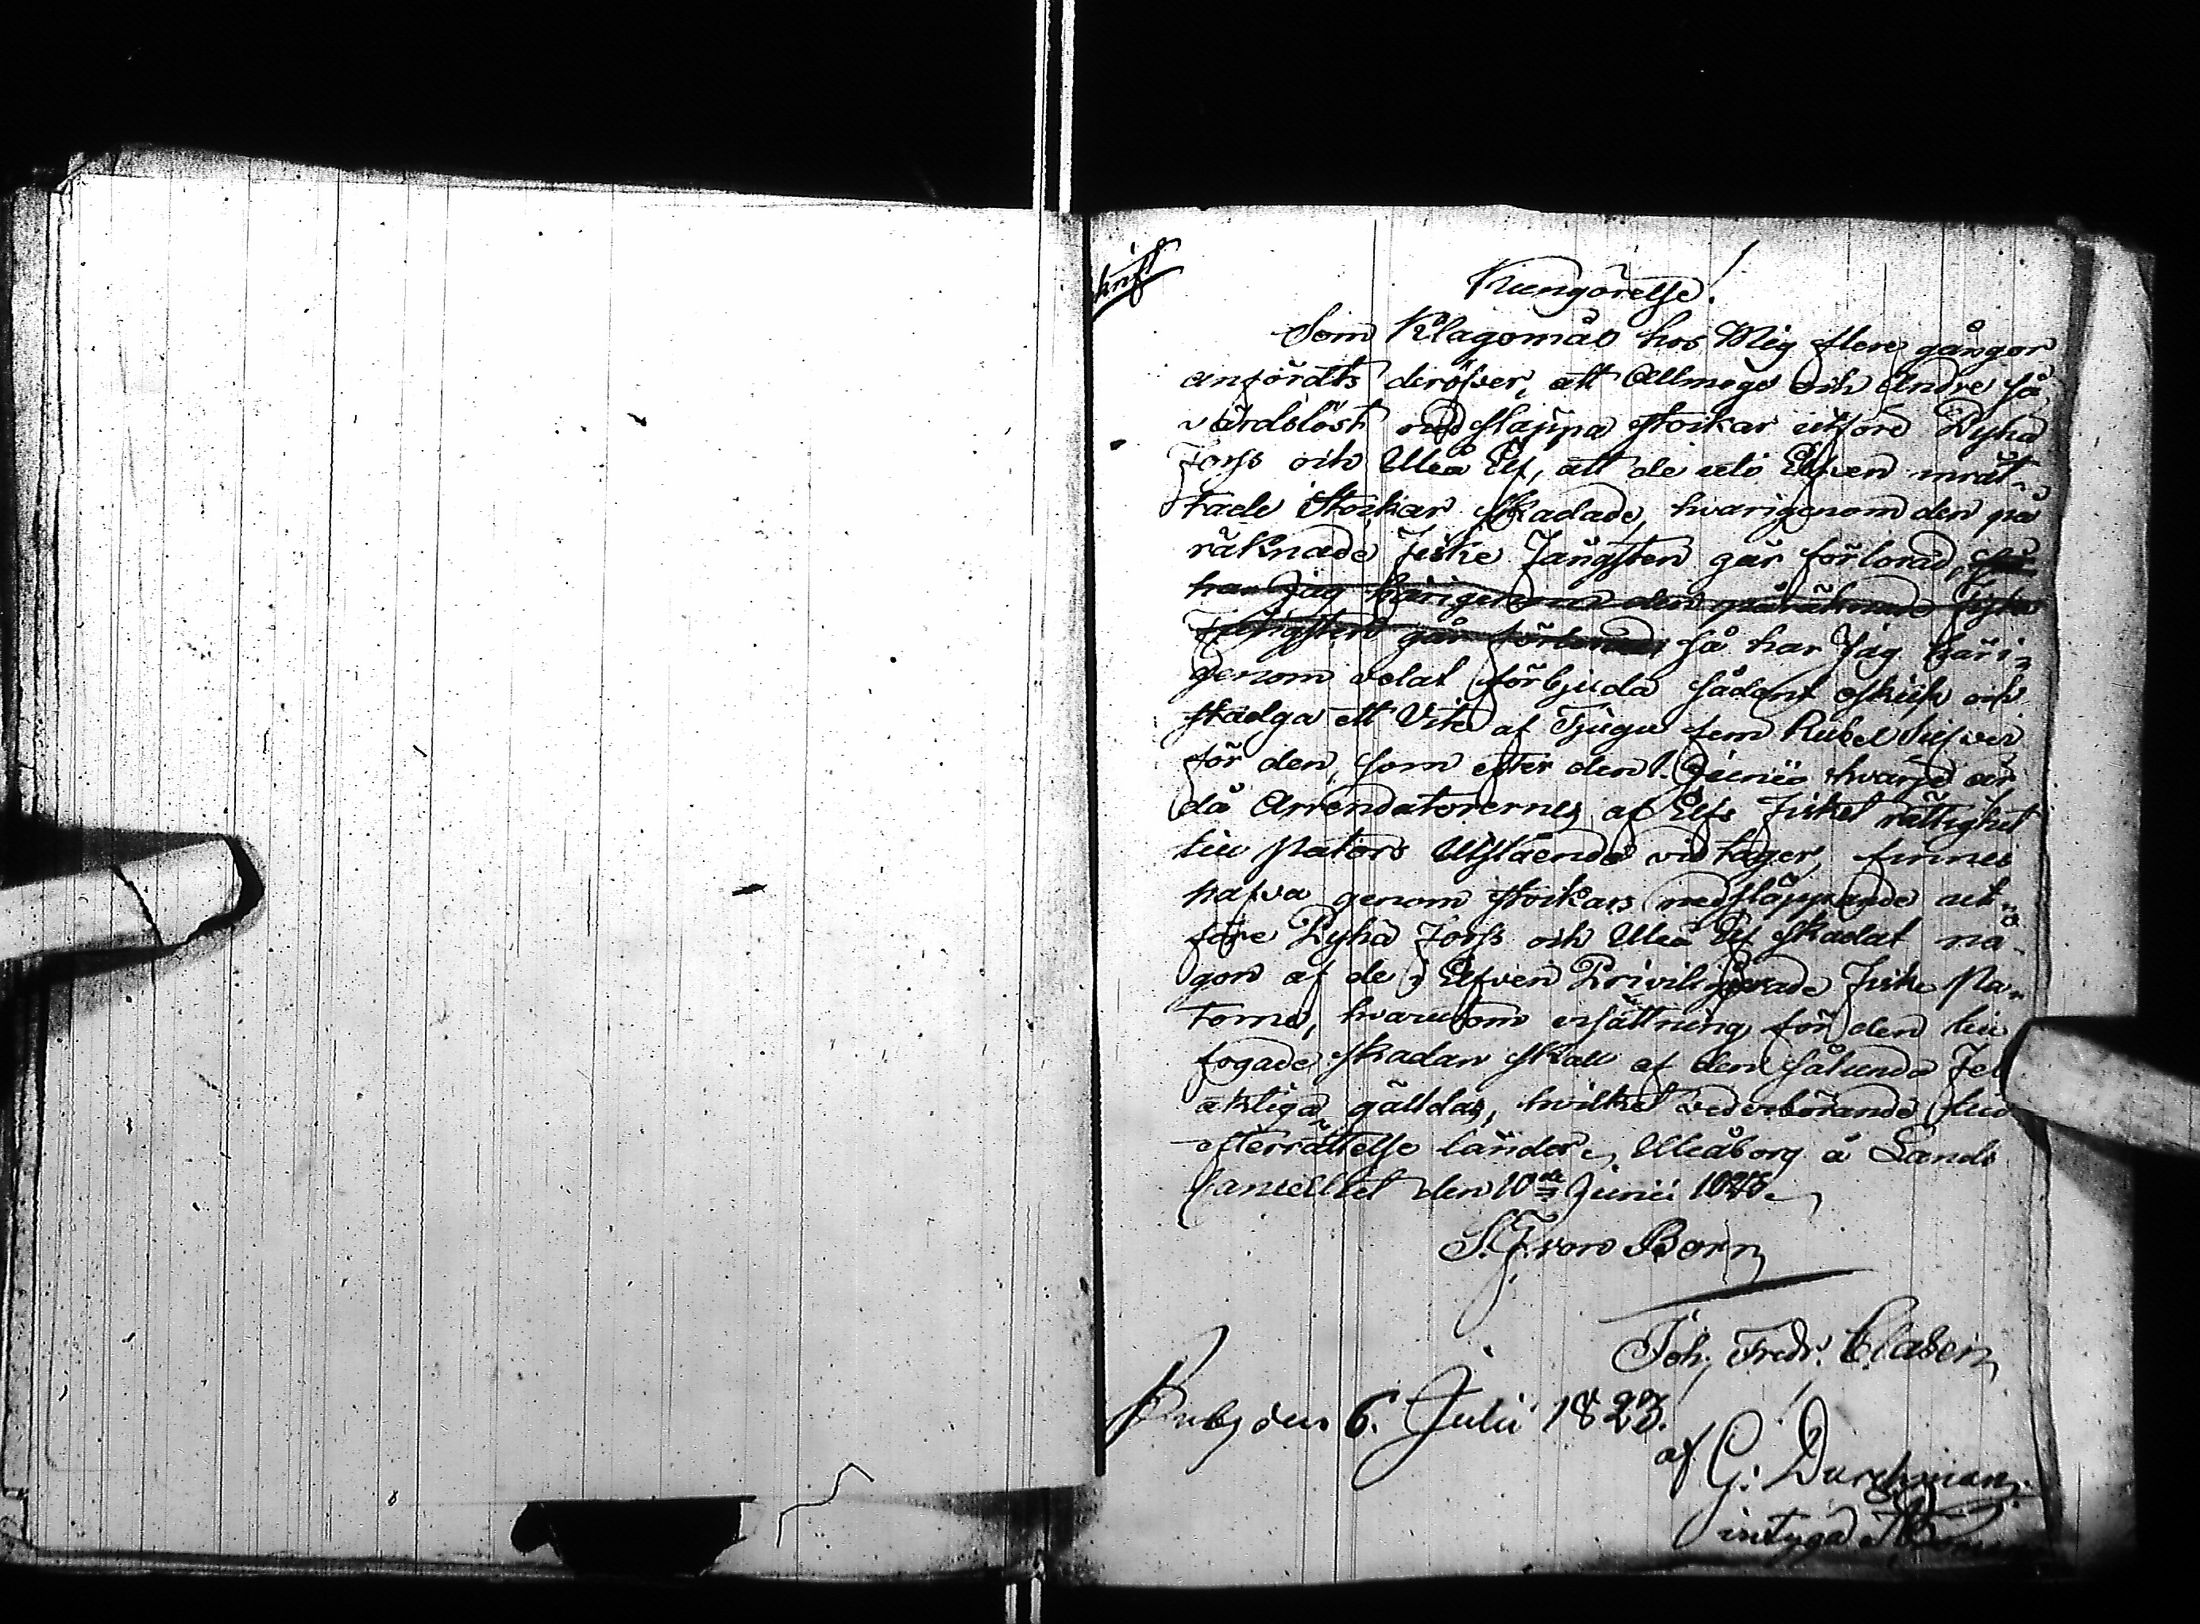 Kungörelse!
Som Klagomål hos Mig flere gångor
anfördts deröfver, att Allmoge och Andre så
vårdslöst nedsläppa stockar utföre Pyhä
Forss och Uleå Elf, att de uti Elfven inrät-
tade Stockar skadade, hvarigenom den på
räknade Fiske Fångsten går förlorad, så
har Jag härigenom den påräknade fiske
Fångsten går förlorad, så har Jag häri-
genom velat förbjuda sådant oskick och
stadga ett Vite af Tjugu fem Rubel Silfver
för den, som efter den 1. Junii hvarje år
då Arrendatorernes af Elfs Fisket rättighet
till Pators Utstående vidtager, finnes
hafva genom stockars nedsläppande ut-
före Pyhä Forss och Uleå Elf skadat nå-
gon af de i Elfven Priviligierade Fiske Pa-
torne, hvarutom ersättning för den till
fogade skadan skall af den sålunda Fel
aktiga gälldas, hvilket vederbörande till
efterrättelse länder. Uleåborg å Lands
Cancelliet den 10de Junii 1823.
S. F. von Born
Joh. Fredr. Clasen
den 6. Julii 1823.
af G. Durchman
intyga